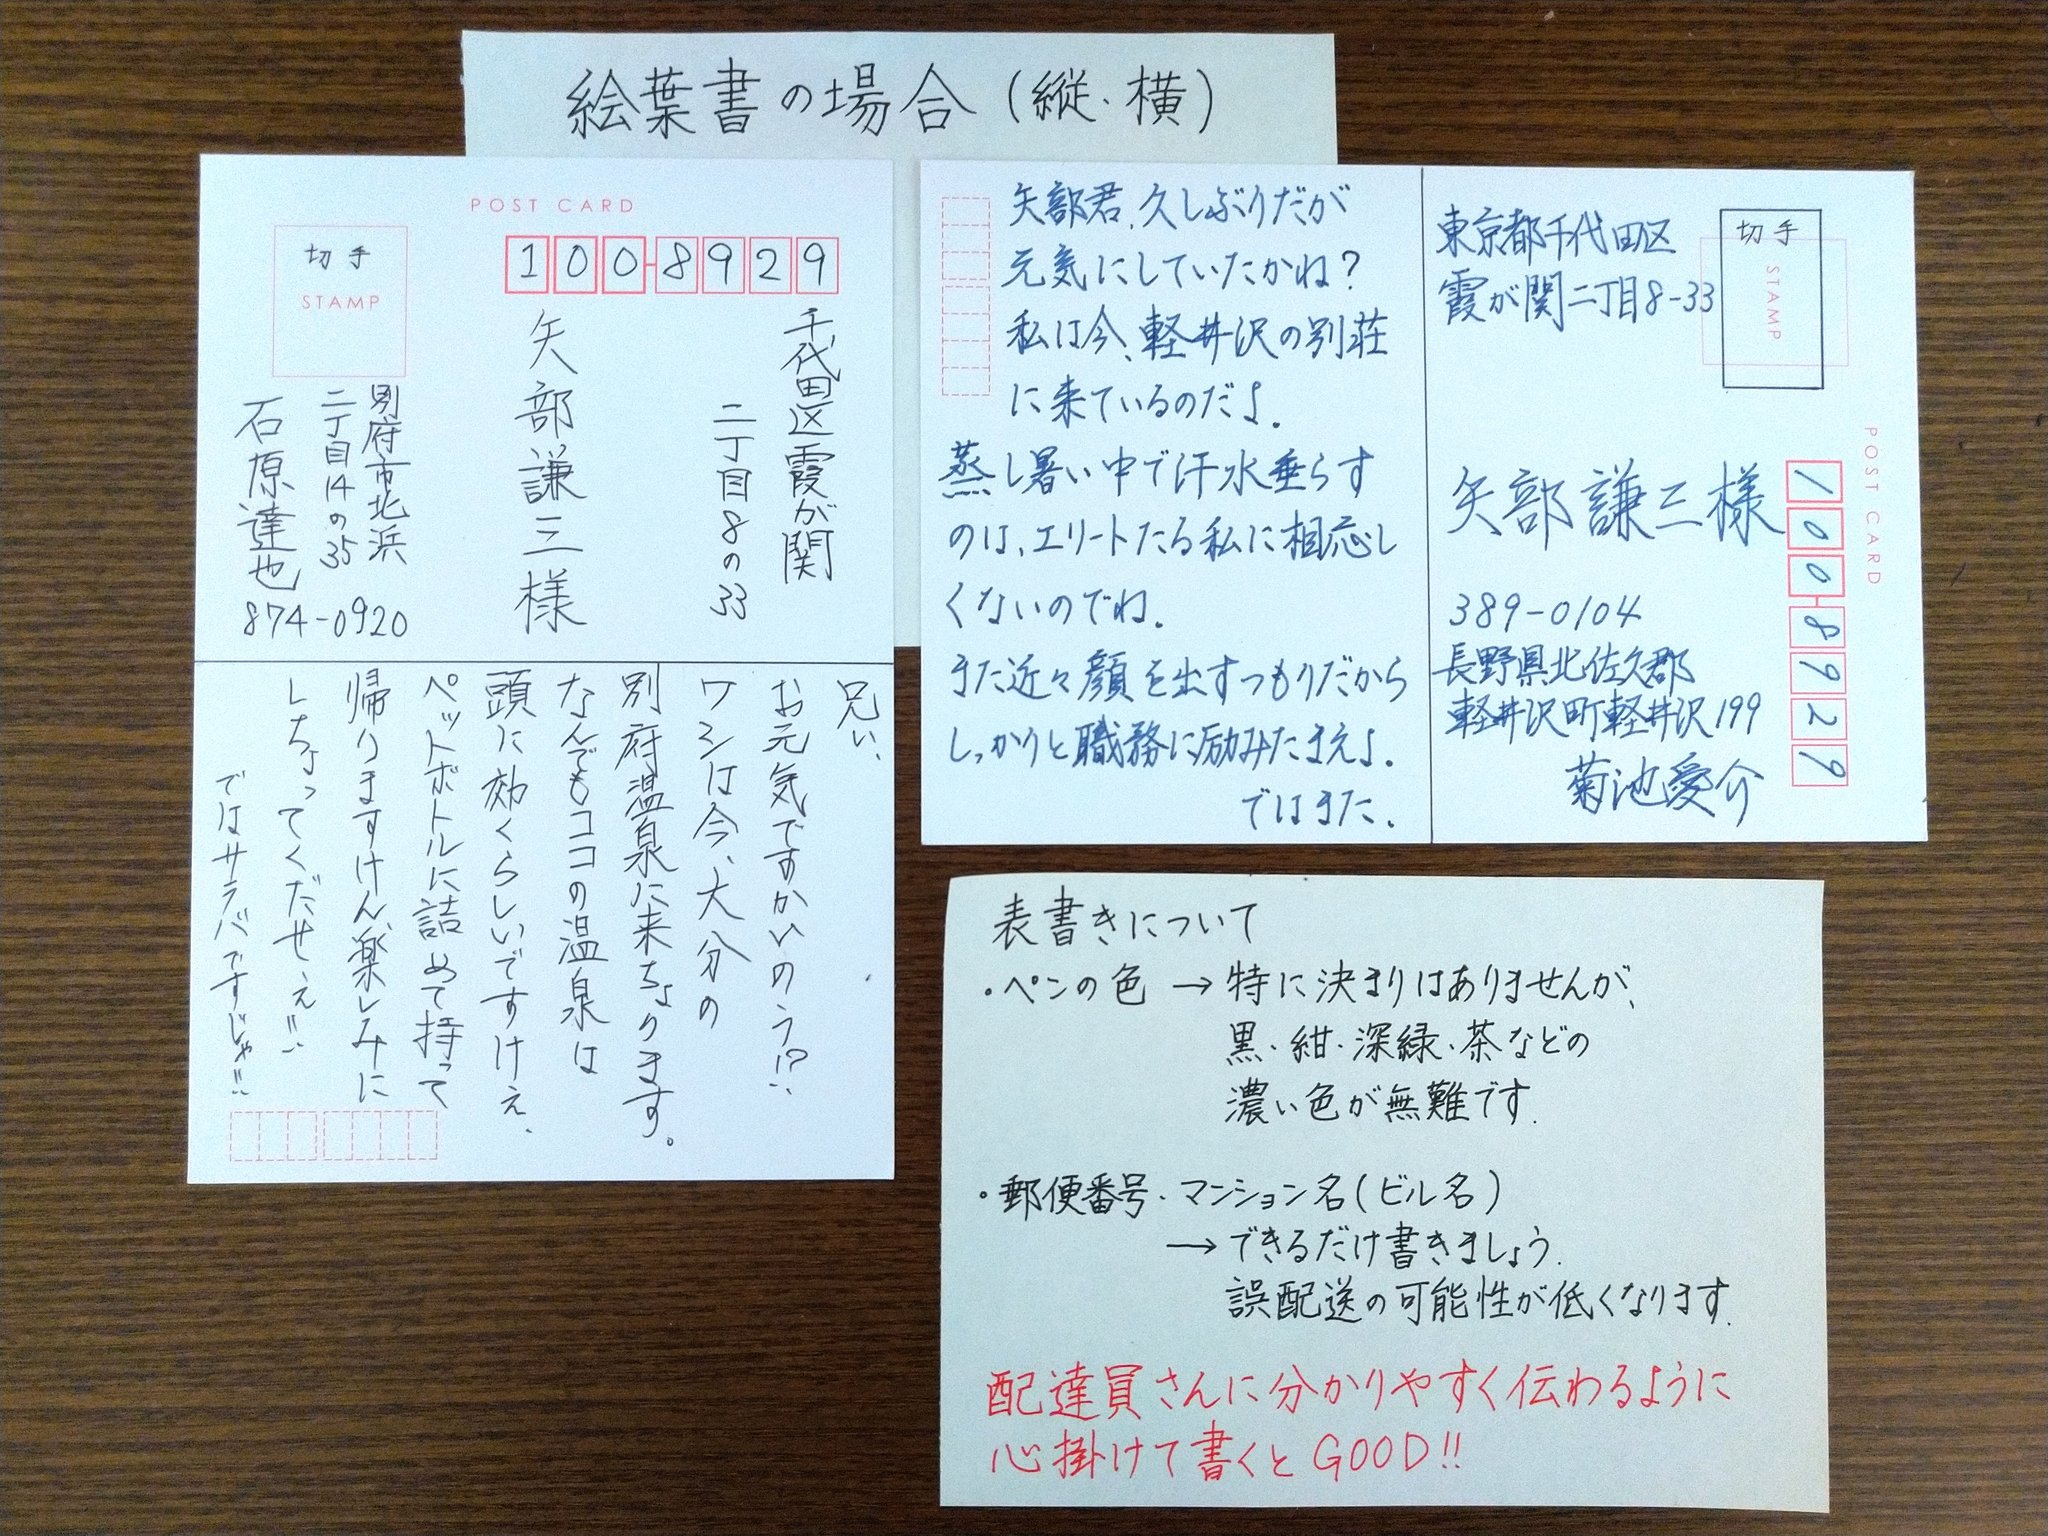 絵葉書の場合(縦・横)
POST CARD
切手
STAMP
100-8929
千代田区霞が関
二丁目8の33
矢部謙三様
別府市北浜
二丁目14の35
石原達也
874-0920
兄ィ、
お元気ですかいのう!?
ワシは今、大分の
別府温泉に来ちょります。
なんでもココの温泉は
頭に効くらしいですけぇ、
ペットボトルに詰めて持って
帰りますけん、楽しみに
しちょってくだせぇ!!
ではサラバですじゃ!!
矢部君、久しぶりだが
元気にしていたかね?
私は今、軽井沢の別荘
に来ているのだよ.
蒸し暑い中で汗水垂らす
のは、エリートたる私に相応し
くないのでね.
また近々顔を出すつもりだから
しっかりと職務に励みたまえよ.
ではまた.
東京都千代田区
霞が関二丁目8-33
切手
STAMP
POST CARD
矢部謙三様
100-8929
389-0104
長野県北佐久郡
軽井沢町軽井沢199
菊池愛介
表書きについて
・ペンの色 → 特に決まりはありませんが、
黒・紺・深緑・茶などの
濃い色が無難です.
・郵便番号・マンション名(ビル名)
→できるだけ書きましょう.
誤配送の可能性が低くなります.
配達員さんに分かりやすく伝わるように
心掛けて書くとGOOD!!